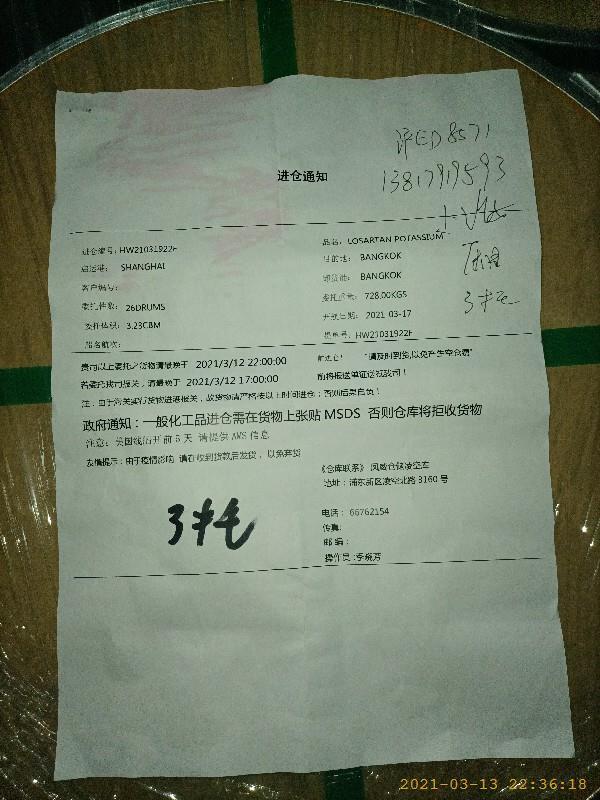 浒ED8571
13817919593
进仓通知
进仓编号: HW21031922F
品名: LOSARTAN POTASSIUM
启运港: SHANGHAI
目的地: BANGKOK
客户编号:
卸货港: BANGKOK
委托件数: 26DRUMS
委托重量: 728.00KGS
3托
委托体积: 3.23CBM
开航日期: 2021-03-17
船名航次:
提单号: HW21031922F
贵司以上委托之货物请最晚于 2021/3/12 22:00:00 前进仓! "请及时到货,以免产生空仓费"
若委托我司报关,请最晚于 2021/3/12 17:00:00 前将报送单证送抵我司!
注:由于海关实行货物进港报关,故货物请严格按以上时间进仓;否则后果自负!
政府通知:一般化工品进仓需在货物上张贴 MSDS 否则仓库将拒收货物
注意: 美国线船开前 6 天 请提供 AMS 信息
友情提示:由于疫情影响 请在收到货款后发货,以免弃货
《仓库联系》
地址:浦东新区凌空北路 3160 号
3托
电话: 66762154
传真:
邮编:
操作员:李晓芳
2021-03-13 22:36:18